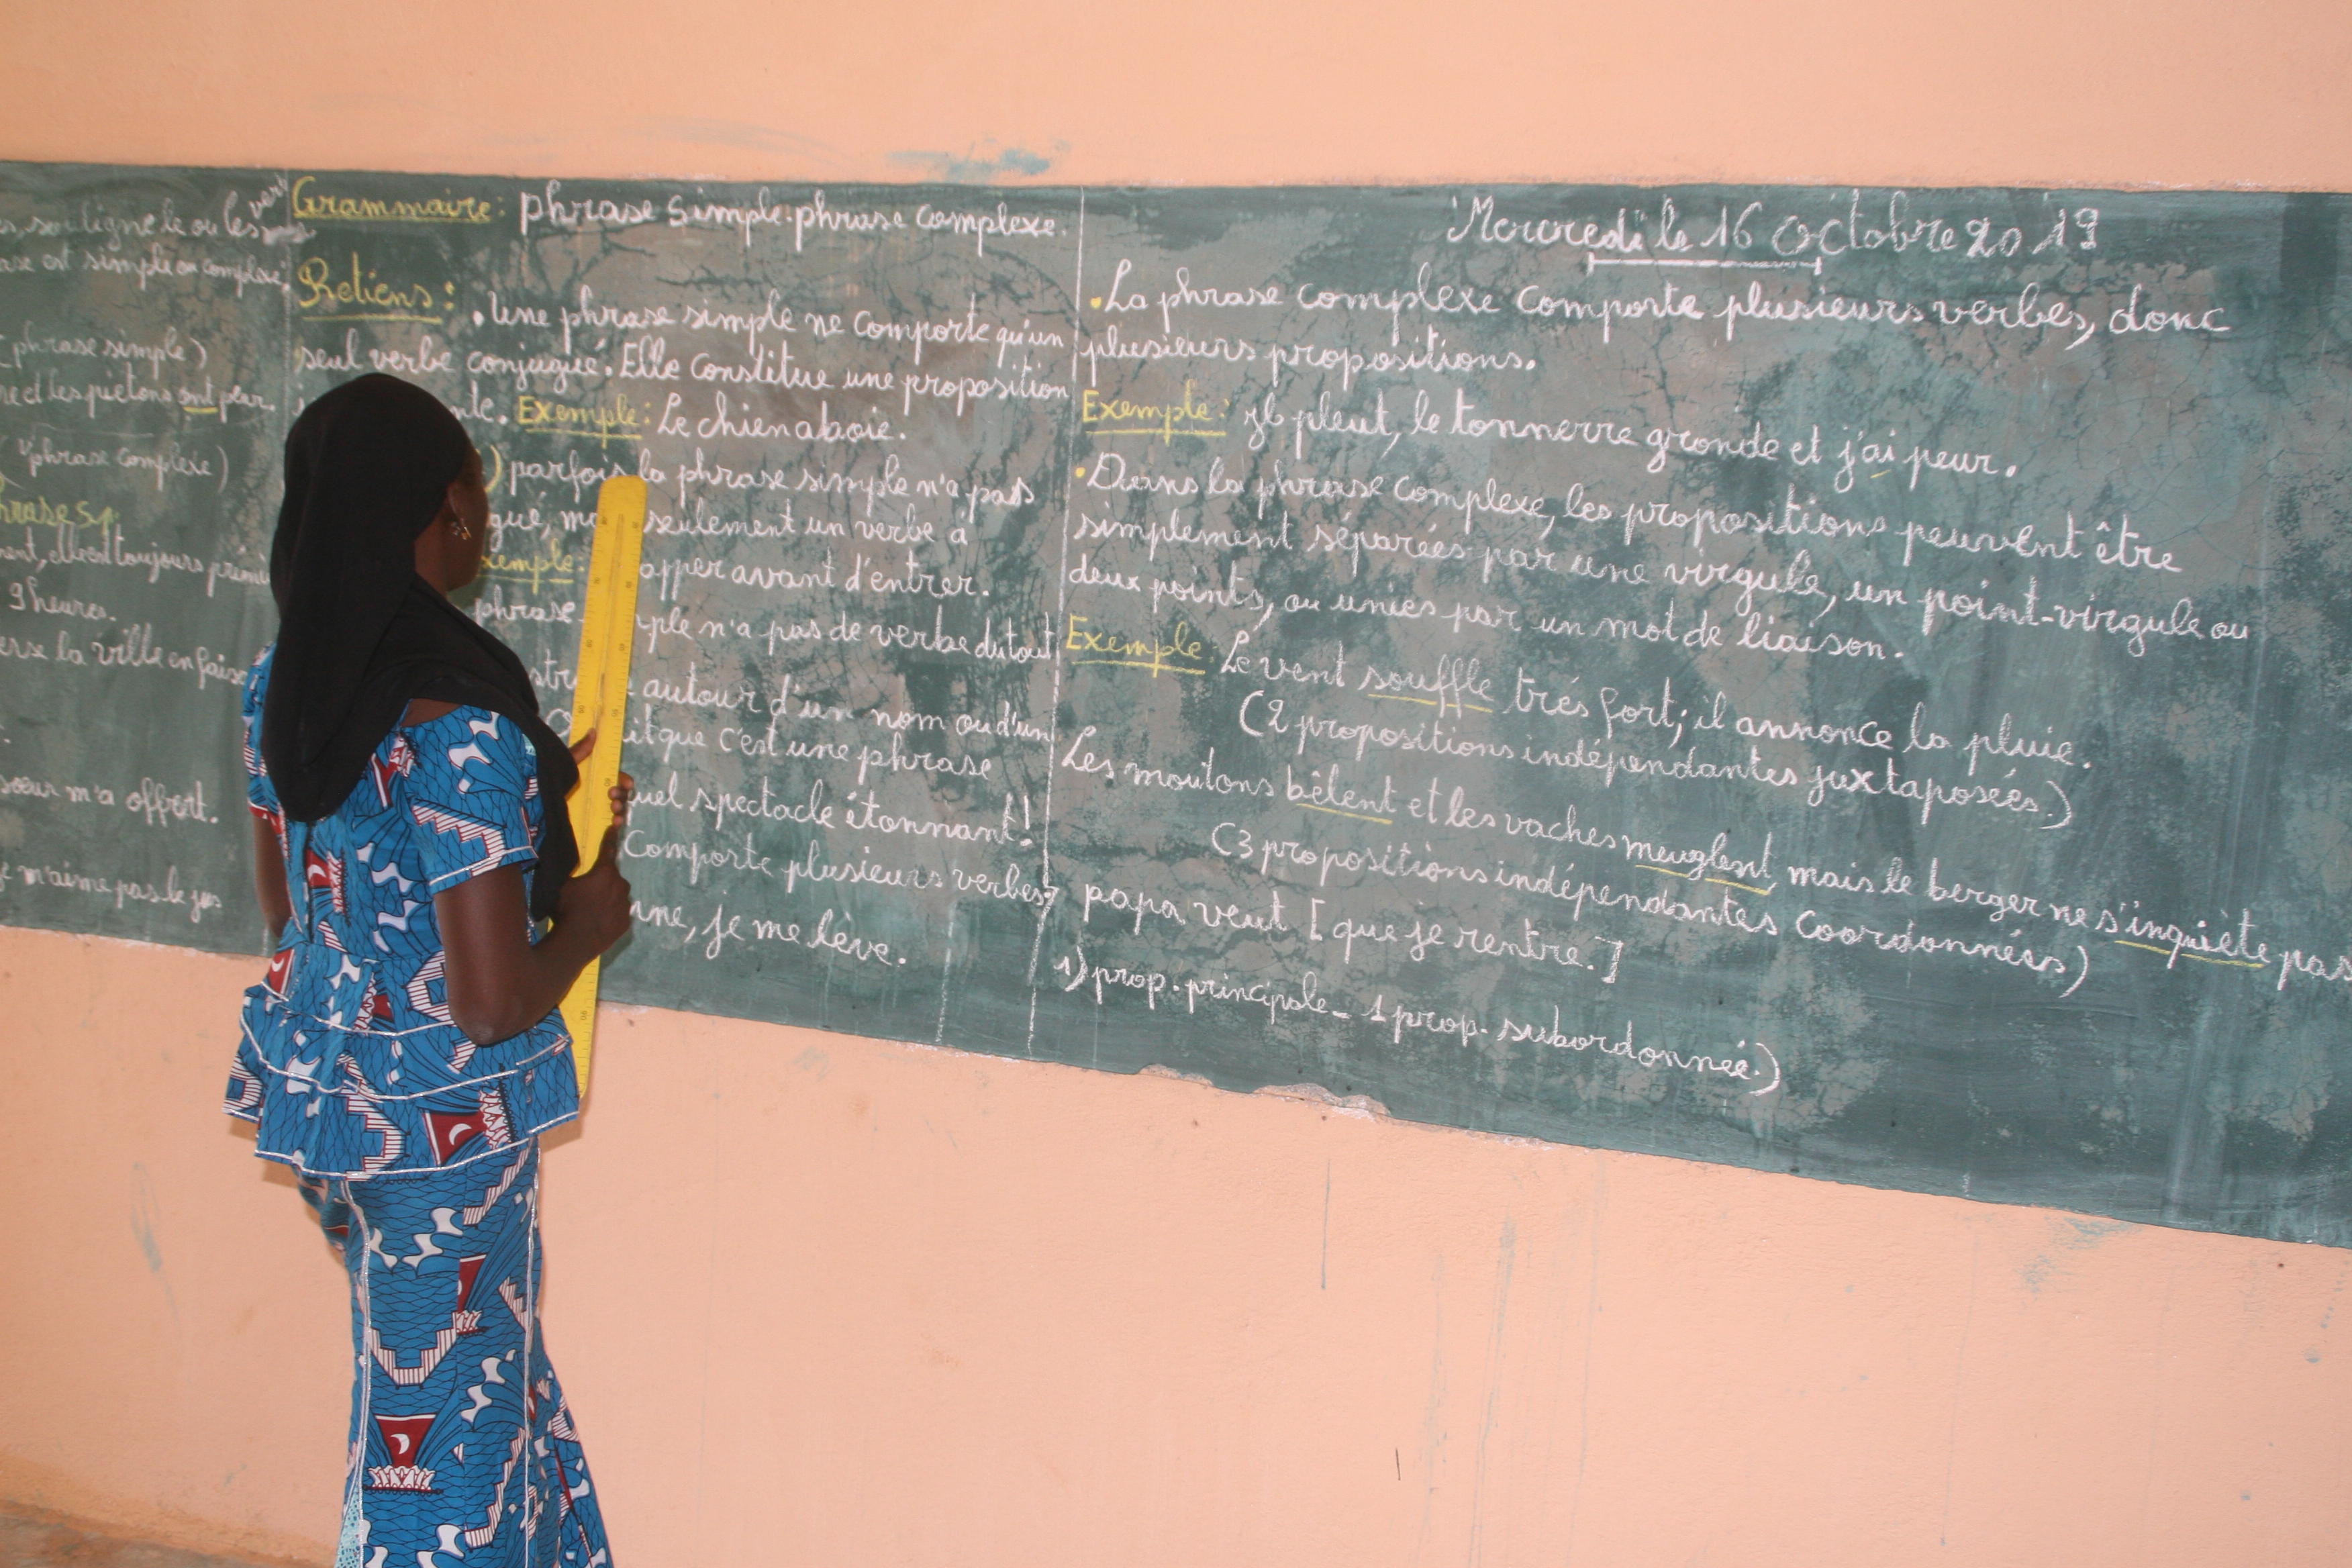 souligne le ou les verbes
est simple ou complexe.
phrase simple)
et les piétons ont peur.
(phrase complexe)
phrase sp
ent, elle est toujours
9 heures.
la ville en
soeur m'a offert.
je n'aime pas le jus
Grammaire: phrase simple.phrase complexe.
Retiens:
. Une phrase simple ne comporte qu'un
seul verbe conjugué. Elle constitue une proposition
nte. Exemple: Le chien aboie.
) parfois la phrase simple n'a pas
gué, seulement un verbe à
xemple: apper avant d'entrer.
phrase mple n'a pas de verbe du tout
autour d'un nom ou d'un
it que c'est une phrase
quel spectacle étonnant!
Comporte plusieurs verbes
nne, je me lève.
Mercredi le 16 Octobre 2019
. La phrase complexe comporte plusieurs verbes, donc
plusieurs propositions.
Exemple: Il pleut, le tonnerre gronde et j'ai peur.
. Dans la phrase complexe, les propositions peuvent être
simplement séparées par une virgule, un point-virgule ou
deux points, ou unies par un mot de liaison.
Exemple: Le vent souffle trés fort; il annonce la pluie.
(2 propositions indépendantes juxtaposées.)
Les moutons bêlent et les vaches meuglent, mais le berger ne s'inquiète pas
(3 propositions indépendantes coordonnées)
papa veut [que je rentre.]
1) prop. principale - 1 prop. subordonnée.)